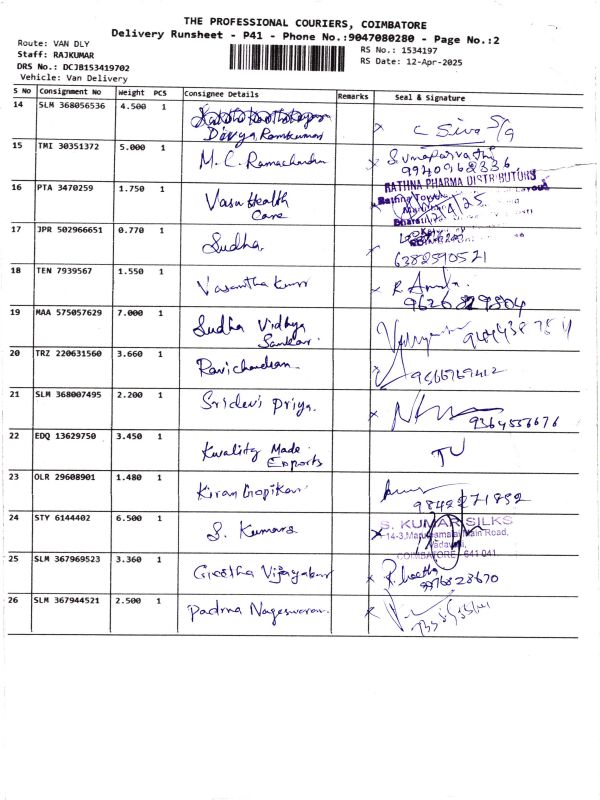 THE PROFESSIONAL COURIERS, COIMBATORE
Delivery Runsheet - P41 - Phone No.:9047080280 - Page No.:2
Route: VAN DLY
Staff: RAJKUMAR
DRS No.: DCJB153419702
Vehicle: Van Delivery
RS No.: 1534197
RS Date: 12-Apr-2025
S No Consignment No Weight PCS Consignee Details Remarks Seal & Signature
14 SLM 368056536 4.500 1 Divya Ramkumar
15 TMI 30351372 5.000 1 M. C. Ramachandran
9940962336
16 PTA 3470259 1.750 1 Vasu Health Care
RATHNA PHARMA DISTRIBUTORS
17 JPR 502966651 0.770 1 Sudha.
6382590521
18 TEN 7939567 1.550 1 Vasantha Kumar
9626829804
19 MAA 575057629 7.000 1 Sudha Vidhya Sankar
20 TRZ 220631560 3.660 1 Ravichandran.
9566769412
21 SLM 368007495 2.200 1 Sridevi Priya.
9364556676
22 EDQ 13629750 3.450 1 Kwality Made Exports
23 OLR 29608901 1.480 1 Kiran Gopikar
9842271892
24 STY 6144402 6.500 1 S. Kumars
S. KUMAR SILKS
COIMBATORE - 641 041
25 SLM 367969523 3.360 1 Geetha Vijayakumar
26 SLM 367944521 2.500 1 Padma Nageswaran.